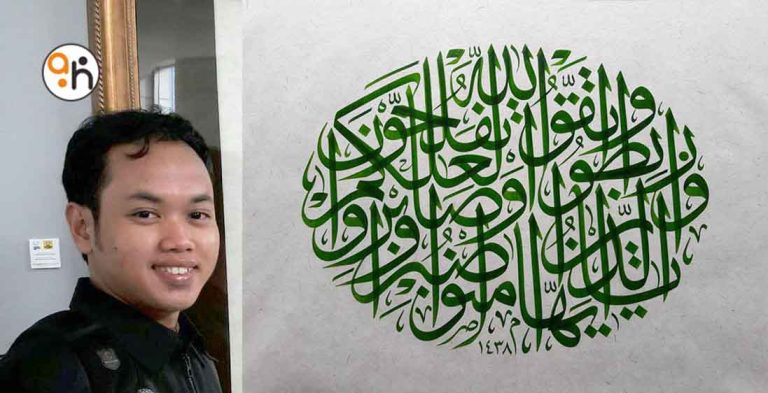 يايها الذين امنوا اصبروا وصابروا ورابطوا واتقوا الله لعلكم تفلحون
١٤٣٨